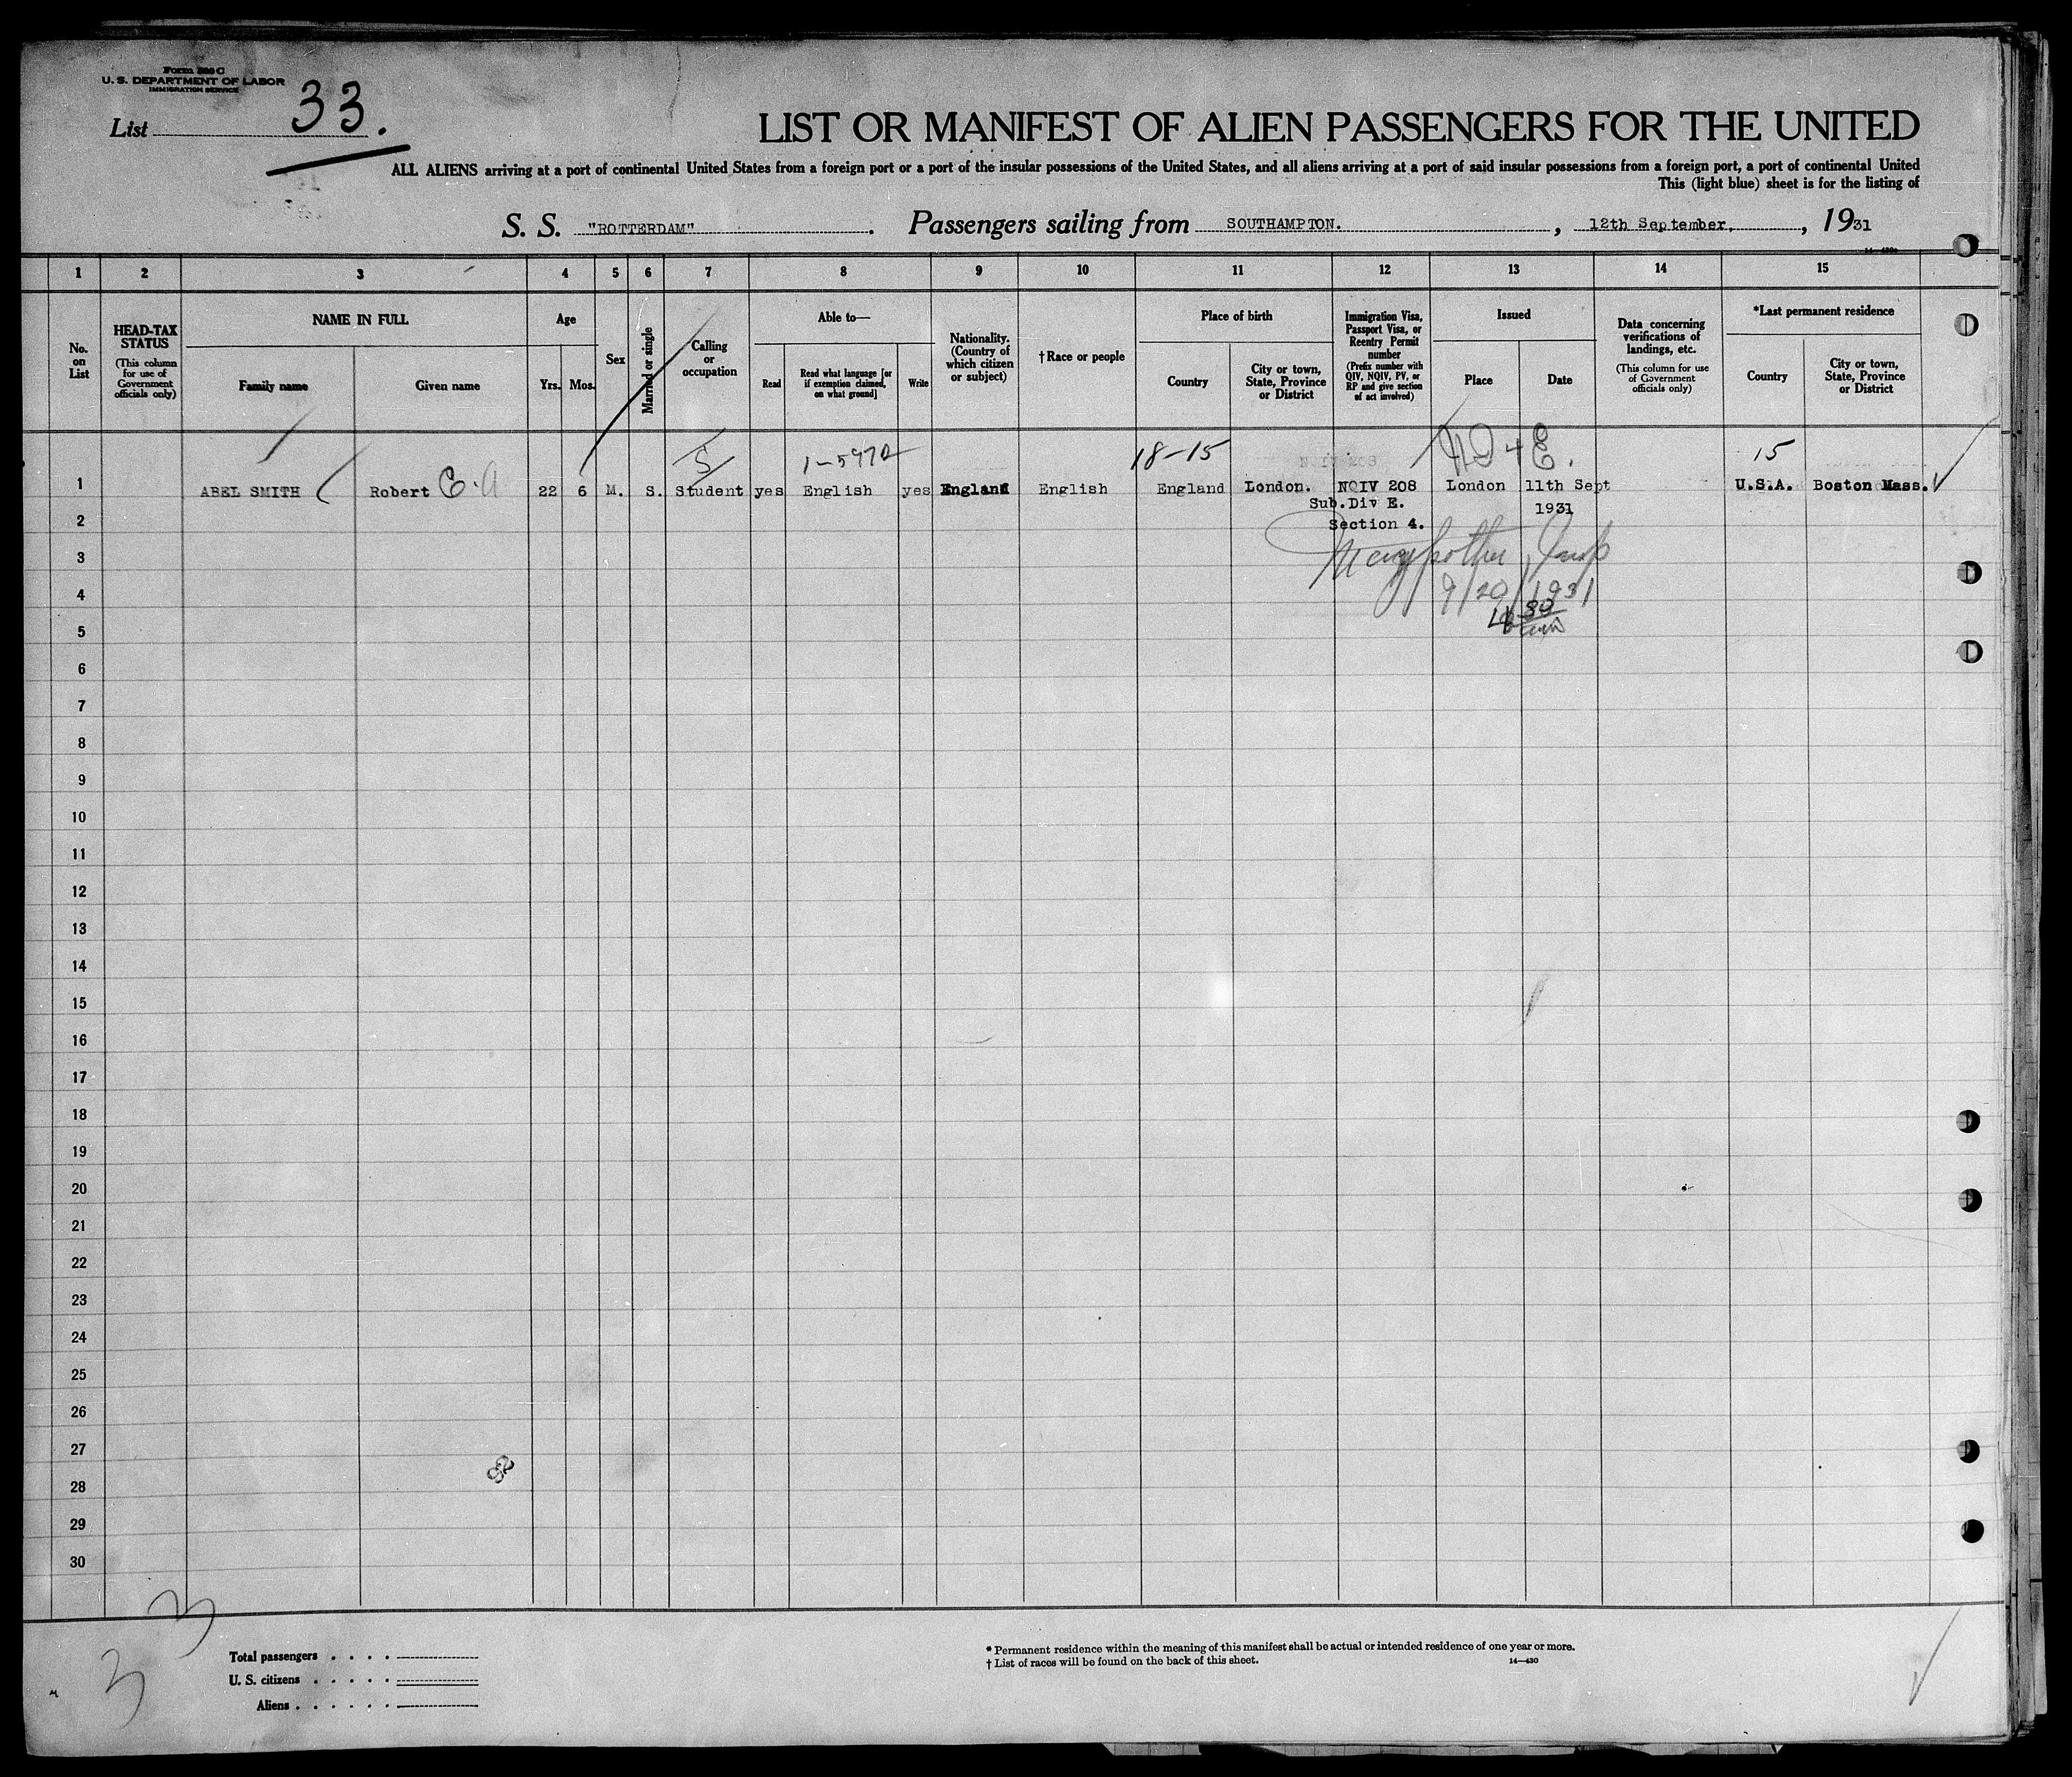 Form 500 C
U. S. DEPARTMENT OF LABOR
IMMIGRATION SERVICE
List 33.
LIST OR MANIFEST OF ALIEN PASSENGERS FOR THE UNITED
ALL ALIENS arriving at a port of continental United States from a foreign port or a port of the insular possessions of the United States, and all aliens arriving at a port of said insular possessions from a foreign port, a port of continental United
This (light blue) sheet is for the listing of
S. S. "ROTTERDAM". Passengers sailing from SOUTHAMPTON., 12th September, 1931
1 2 3 4 5 6 7 8 9 10 11 12 13 14 15
No. on List
HEAD-TAX STATUS (This column for use of Government officials only)
NAME IN FULL
Family name
Given name
Age
Yrs. Mos.
Sex
Married or single
Calling or occupation
Able to—
Read
Read what language [or if exemption claimed, on what ground]
Write
Nationality. (Country of which citizen or subject)
†Race or people
Place of birth
Country
City or town, State, Province or District
Immigration Visa, Passport Visa, or Reentry Permit number (Prefix number with QIV, NQIV, PV, or RP and give section of act involved)
Issued
Place
Date
Data concerning verifications of landings, etc. (This column for use of Government officials only)
*Last permanent residence
Country
City or town, State, Province or District
18-15 15
1 ABEL SMITH Robert E. A 22 6 M. S. Student yes English yes England English England London. NQIV 208 London 11th Sept U.S.A. Boston Mass.
Sub.Div E. 1931
2 Section 4.
3
4 9/20/1931
5
6
7
8
9
10
11
12
13
14
15
16
17
18
19
20
21
22
23
24
25
26
27
28
29
30
Total passengers
U. S. citizens
Aliens
* Permanent residence within the meaning of this manifest shall be actual or intended residence of one year or more.
† List of races will be found on the back of this sheet. 14—430